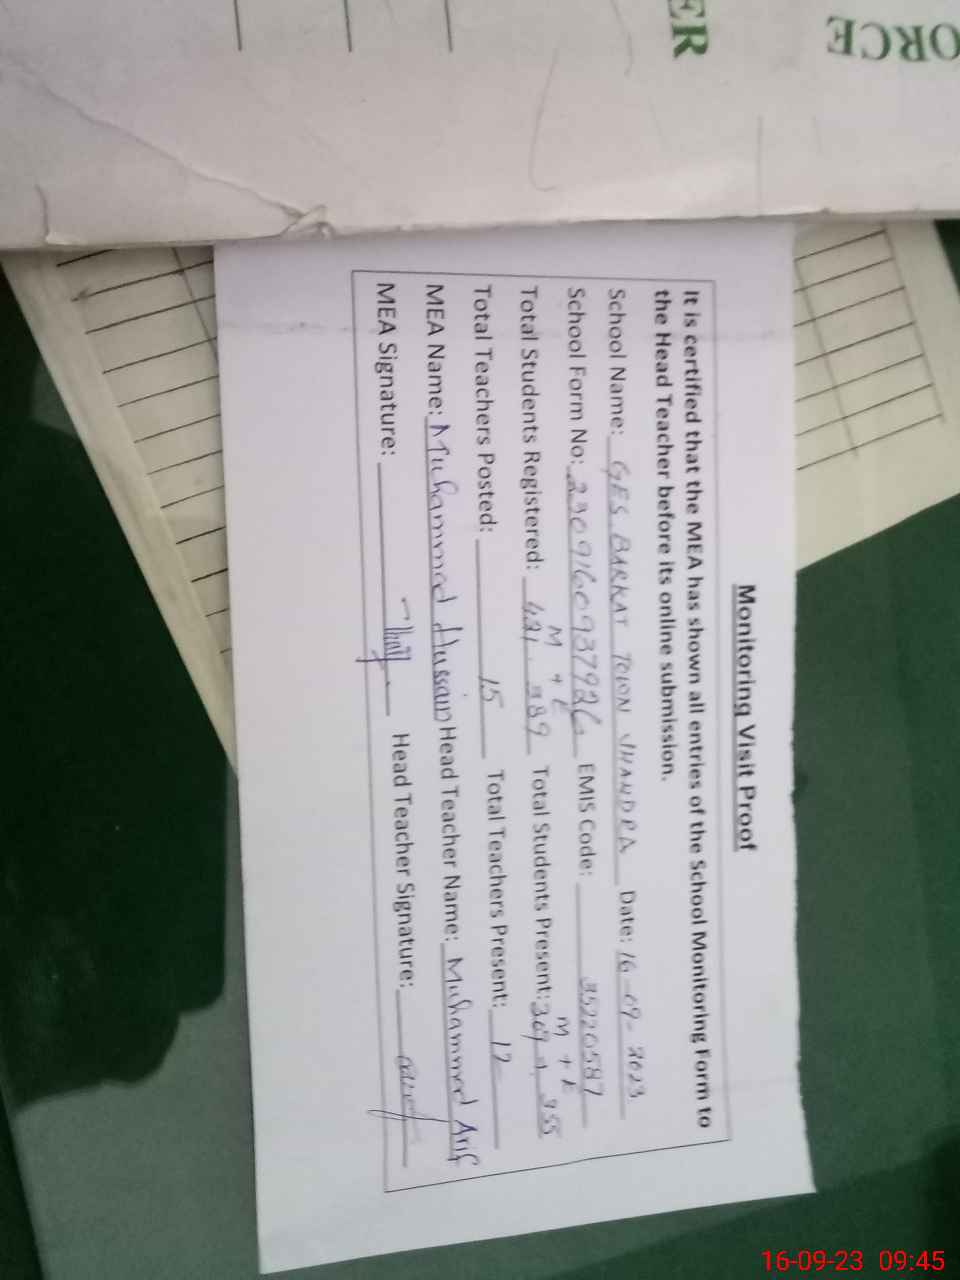 ORCE
ER
Monitoring Visit Proof
It is certified that the MEA has shown all entries of the School Monitoring Form to
the Head Teacher before its online submission.
School Name: GES. BARKAT TOWN JHANDRA Date: 16-09-2023
School Form No: 2309160937926 EMIS Code: 35220587
M + E M + E
Total Students Registered: 421 + 389 Total Students Present: 369 + 355
Total Teachers Posted: 15 Total Teachers Present: 12
MEA Name: Muhammad Hussain Head Teacher Name: Muhammad Arif
MEA Signature: Head Teacher Signature:
16-09-23 09:45